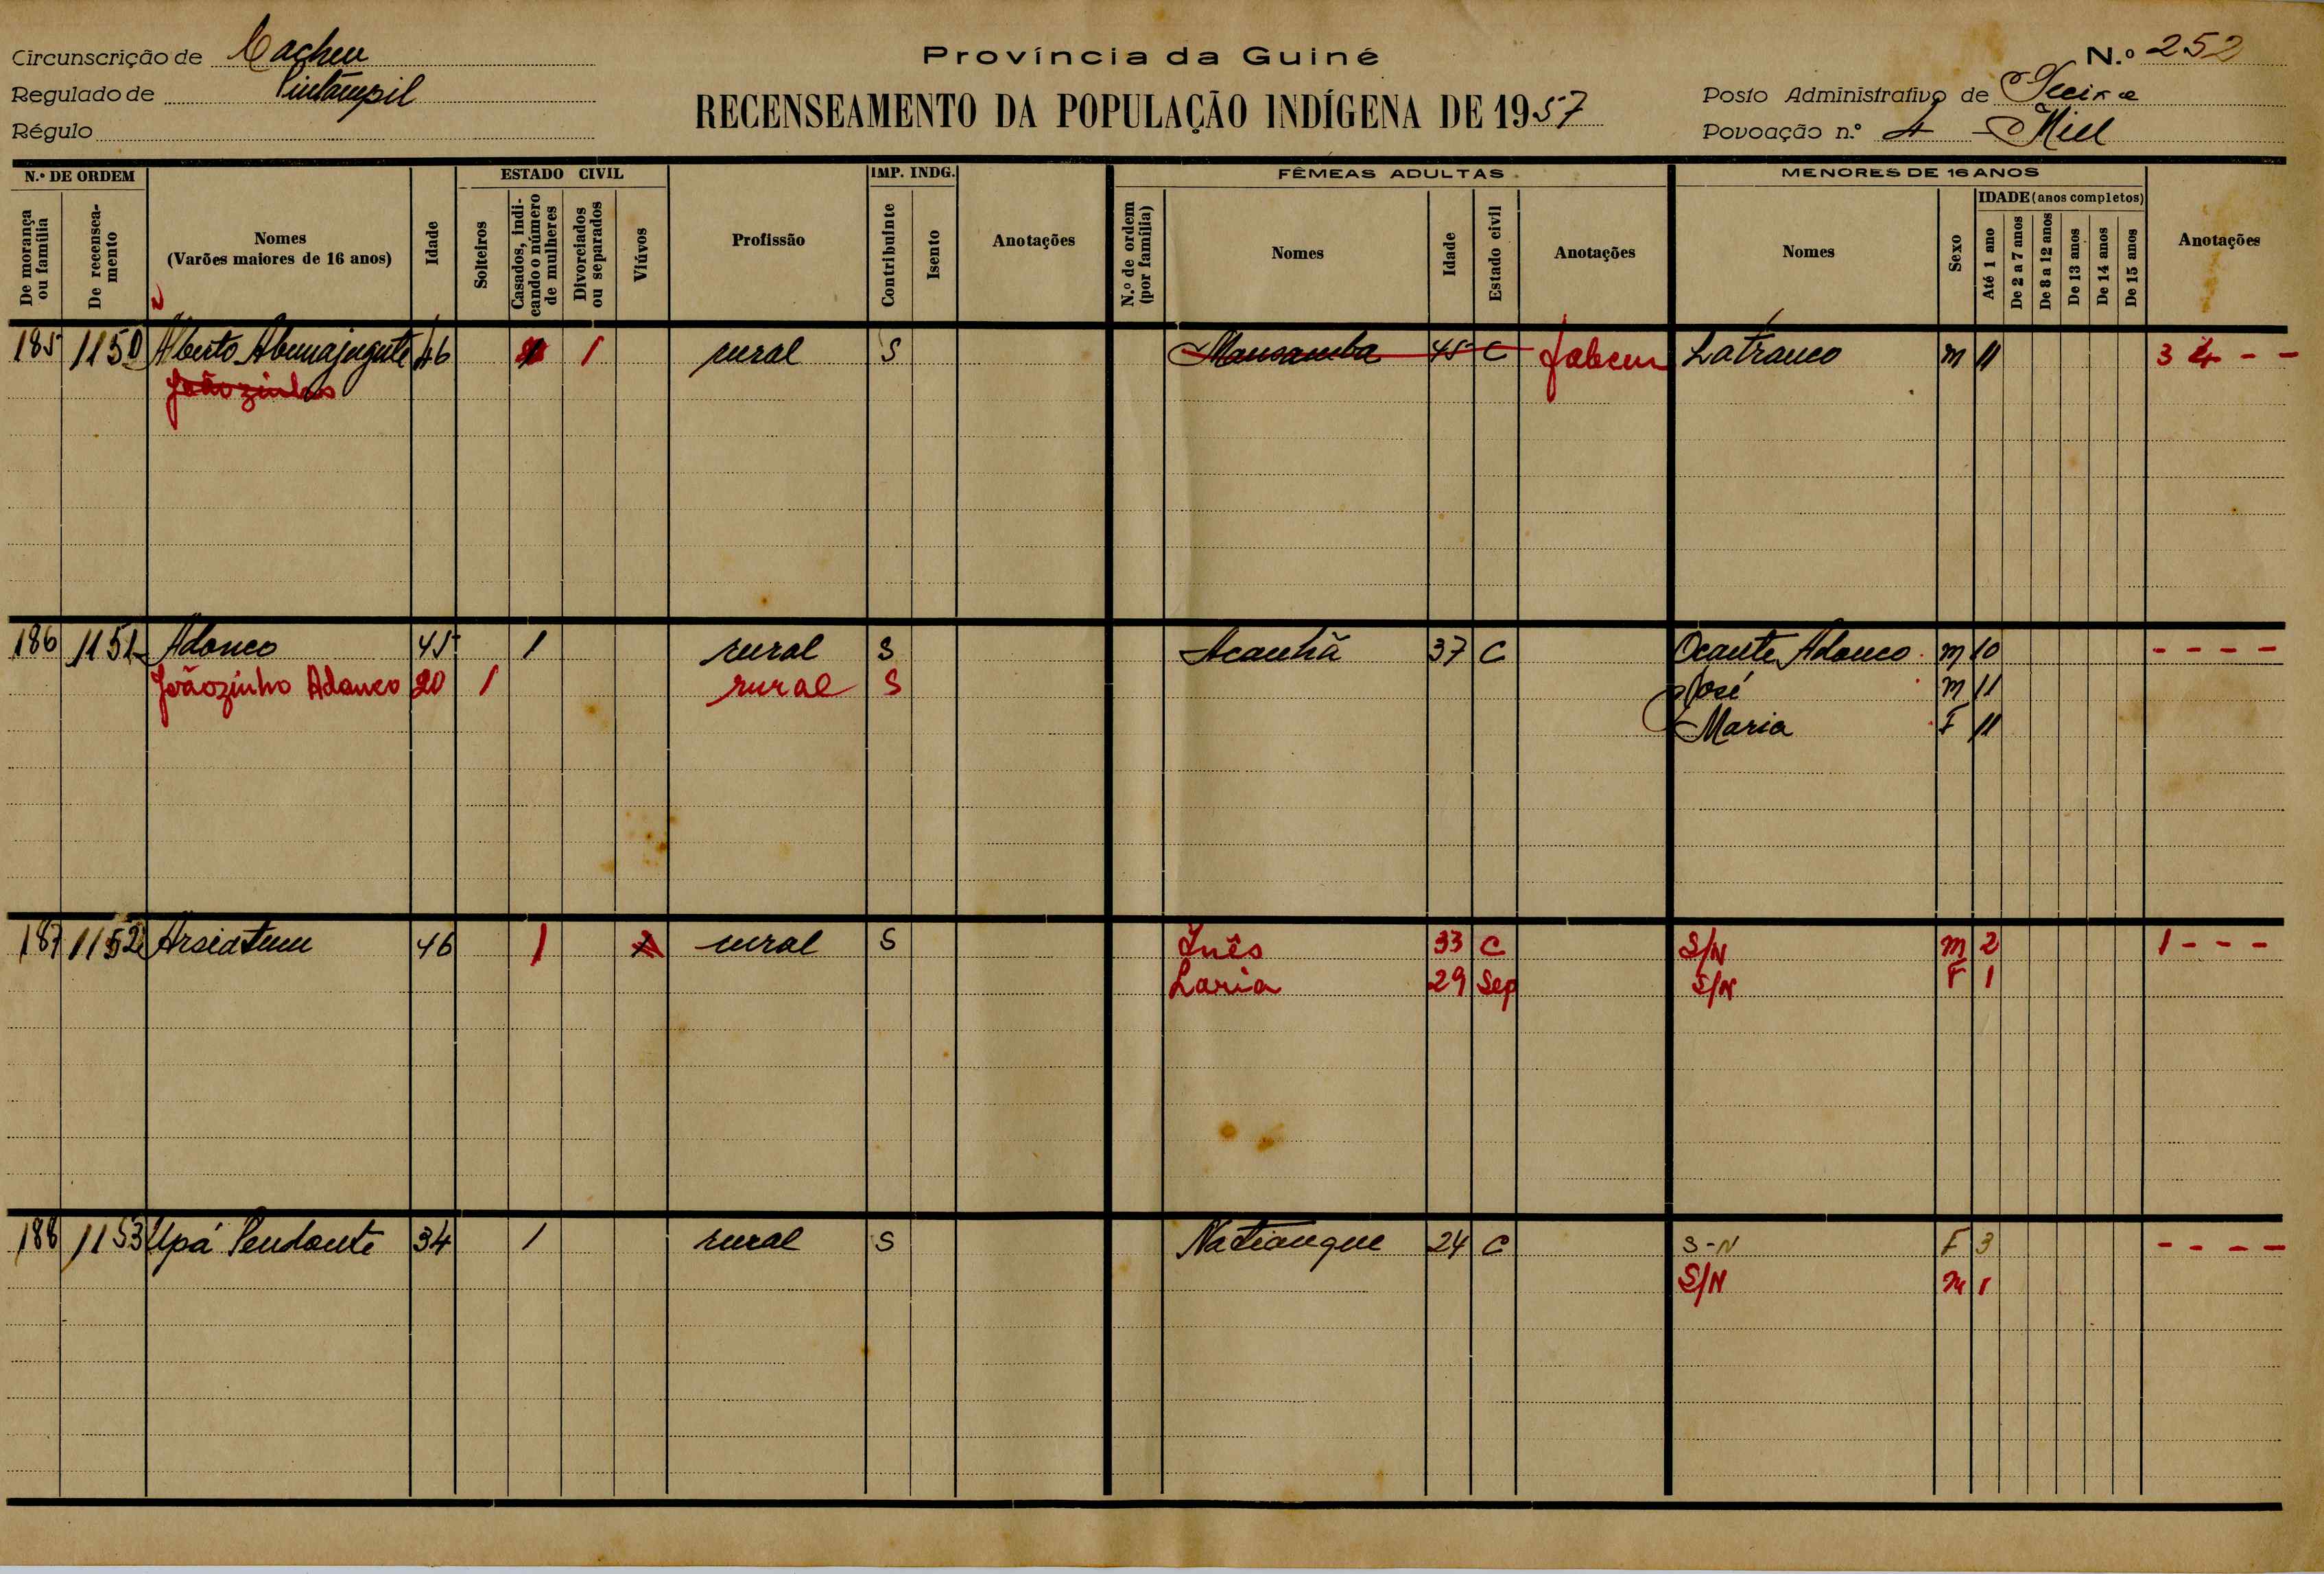 Circunscrição de Cacheu
Regulado de Pintampil
Régulo
Província da Guiné
RECENSEAMENTO DA POPULAÇÃO INDÍGENA DE 1957
N.º 252
Posto Administrativo de
Povoação n.º 4
N.º DE ORDEM
De morança ou família
De recenseamento
Nomes
(Varões maiores de 16 anos)
Idade
ESTADO CIVIL
Solteiros
Casados, indicando o número de mulheres
Divorciados ou separados
Viúvos
Profissão
IMP. INDG.
Contribuinte
Isento
Anotações
FÊMEAS ADULTAS
N.º de ordem (por família)
Nomes
Idade
Estado civil
Anotações
MENORES DE 16 ANOS
Nomes
Sexo
IDADE (anos completos)
Até 1 ano
De 2 a 7 anos
De 8 a 12 anos
De 13 anos
De 14 anos
De 15 anos
Anotações
185 1150 Alberto 46 1 rural S Mansamba 45 C faleceu Latranco m 11 3 4 - -
Joãozinho
186 1151 Adonco 45 1 rural S Acanhã 37 C Ocante Adonco m 10 - - - -
Joãozinho Adonco 20 1 rural S José m 11
Maria F 11
187 1152 46 1 rural S Inês 33 C S/N m 2 1 - - -
Laria 29 Sep S/N F 1
188 1153 Upá Pendante 34 1 rural S Natianque 24 C S-N F 3 - - - -
S/N m 1